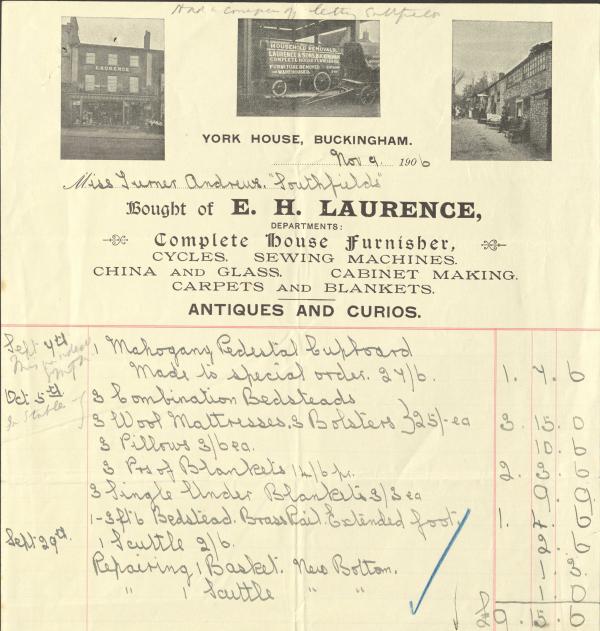 Had a comparer of letting Southfield
LAURENCE
HOUSEHOLD REMOVALS
LAURENCE & SONS, BUCKINGHAM
COMPLETE HOUSE FURNISHERS
FURNITURE REMOVED
OR WAREHOUSED
YORK HOUSE, BUCKINGHAM.
Nov 9. 1906
Miss Turner Andrews. "Southfields"
Bought of E. H. LAURENCE,
DEPARTMENTS:
Complete House Furnisher,
CYCLES. SEWING MACHINES.
CHINA AND GLASS. CABINET MAKING.
CARPETS AND BLANKETS.
ANTIQUES AND CURIOS.
Sept 7th 1 Mahogany Pedestal Cupboard
Made to special order. 27/6. 1. 7. 6
Oct. 5th 3 Combination Bedsteads
In Stable 3 Wool Mattresses, 3 Bolsters } 25/- ea 3. 15. 0
3 Pillows 3/6 ea. 10. 6
3 Prs of Blankets 14/6 pr. 2. 3. 6
3 Single Under Blankets 3/3 ea 9. 9
1-3ft 6 Bedstead. Brass Rail. Extended foot. 1. 4. 6
Sept. 29th. 1 Scuttle 2/6. 2. 6
Repairing 1 Basket. New Bottom. 1. 3
" 1 Scuttle " " 1. 0
£ 9. 15. 6